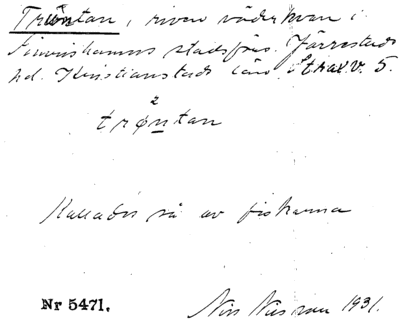 Tröntan, riven väderkvarn i
Simrishamns stadsförs. Järrestads
hd. Kristianstads län. Strax v. S.
2
trøntan
Kallades så av fiskarna
Nr 5471. Nils Nilsson 1931.